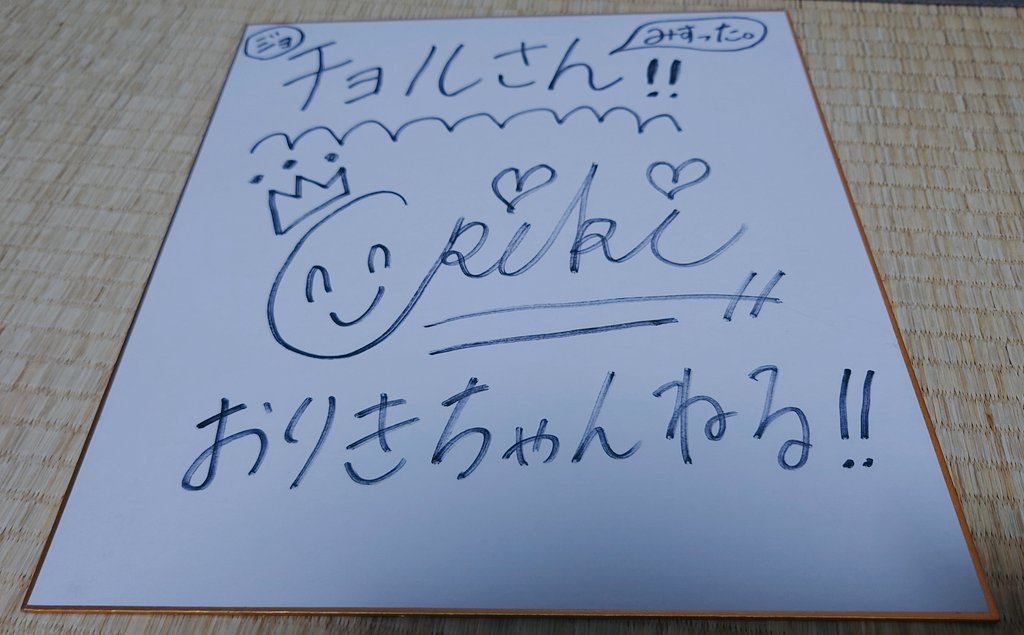 ジョ
みすった。
チョルさん!!
Oriki
おりきちゃんねる!!